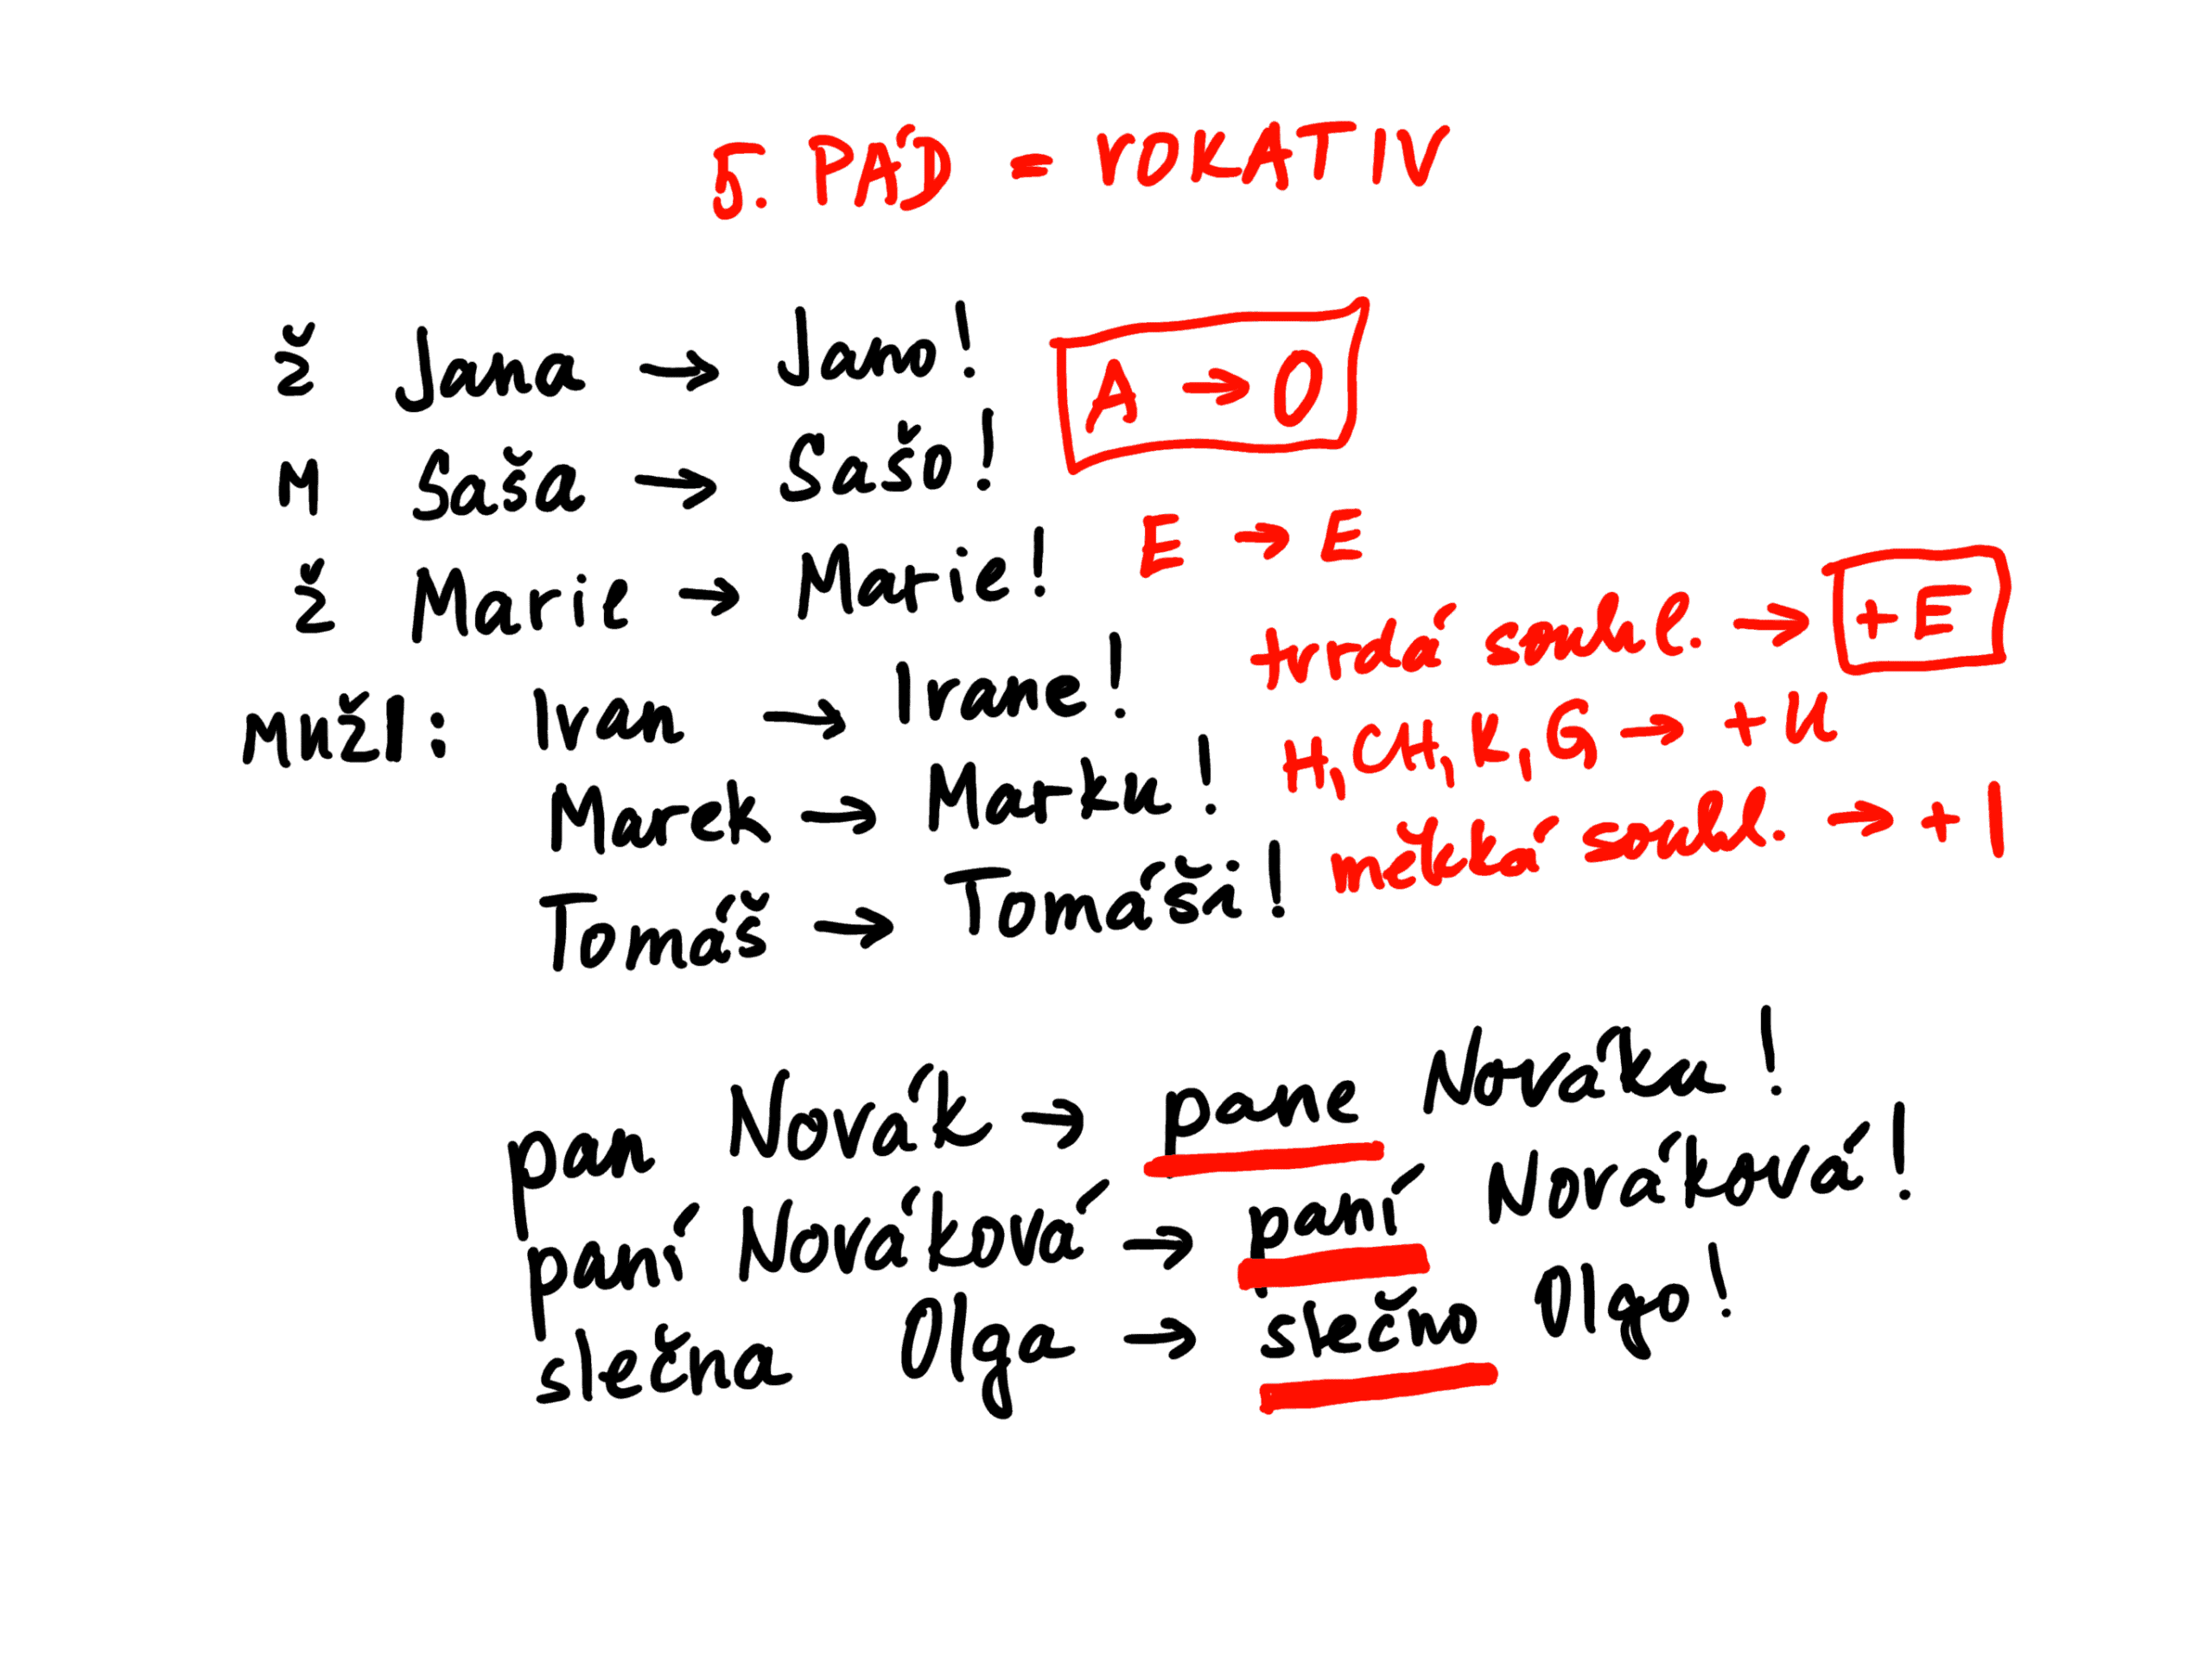 5. PÁD = VOKATIV
Ž Jana → Jano! A → O
M Saša → Sašo!
Ž Marie → Marie! E → E
MUŽI: Ivan → Ivane! tvrdá souhl. → +E
Marek → Marku! H, CH, K, G → +U
Tomáš → Tomáši! měkká souhl. → + I
pan Novák → pane Nováku!
paní Nováková → paní Nováková!
slečna Olga → slečno Olgo!